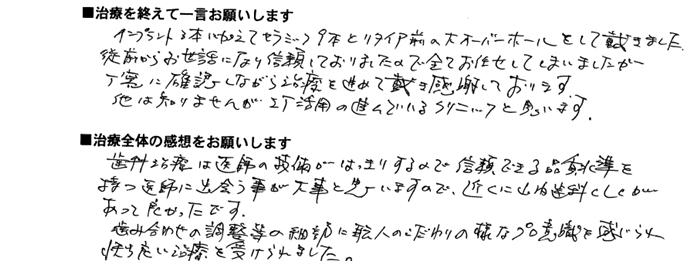 ■治療を終えて一言お願いします
インプラント3本に加えてセラミック9本とリタイア前の大オーバーホールをして戴きました。
従前からお世話になり信頼しておりましたので全てお任せしてしまいましたが
丁寧に確認しながら治療を進めて戴き感謝しております。
他は知りませんがIT活用の進んでいるクリニックと思います。
■治療全体の感想をお願いします
歯科治療は医師の技術がはっきりするので信頼できる品質水準を
持つ医師に出会う事が大事と思いますので、近くに山内歯科さんが
あって良かったです。
歯み合わせの調整等の細部に職人のこだわりの様なプロ意識を感じられ
気持ち良い治療を受けられました。